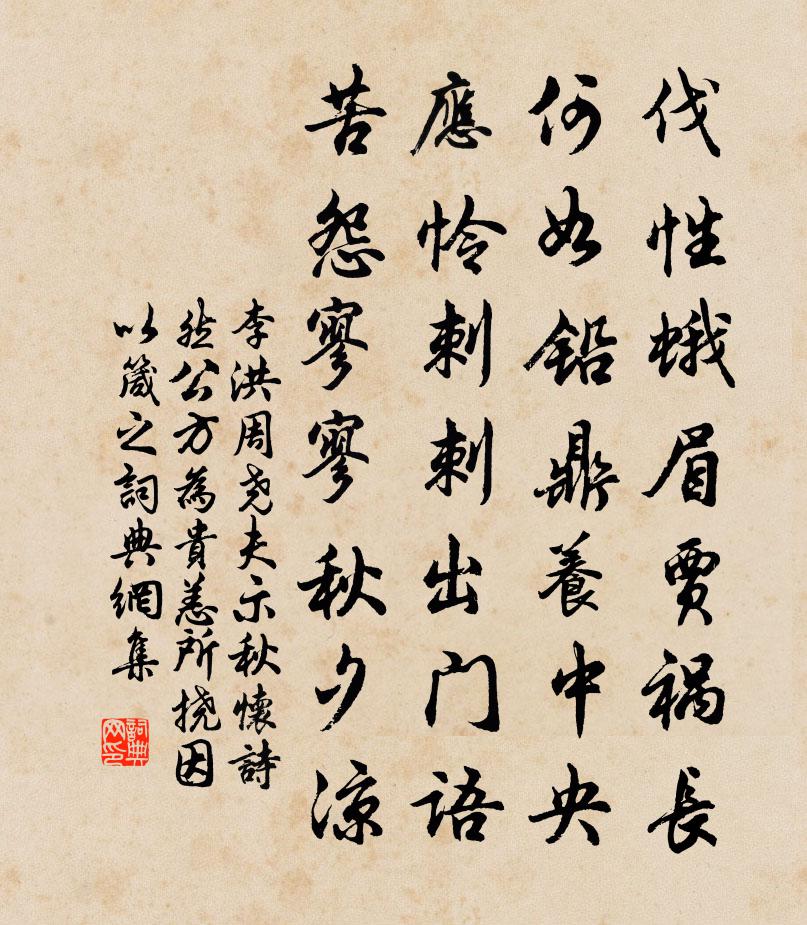 伐性蛾眉賈禍長
何如鉛鼎養中央
應怜刺刺出门語
苦怨寥寥秋夕凉
李洪周尧夫示秋懷詩
然公方為貴恙所撓因
以箴之詞典網集
詞典网印